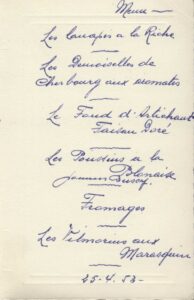 Menu
Les Canapés a la Riche
Les Demoiselles de
Cherbourg aux aromates
Le Fond d'Artichaut
Faisan Doré
Les Poussins a la
Polonaise
Fromages
Les Vilmorins aux
Marasquin
25-4.53-